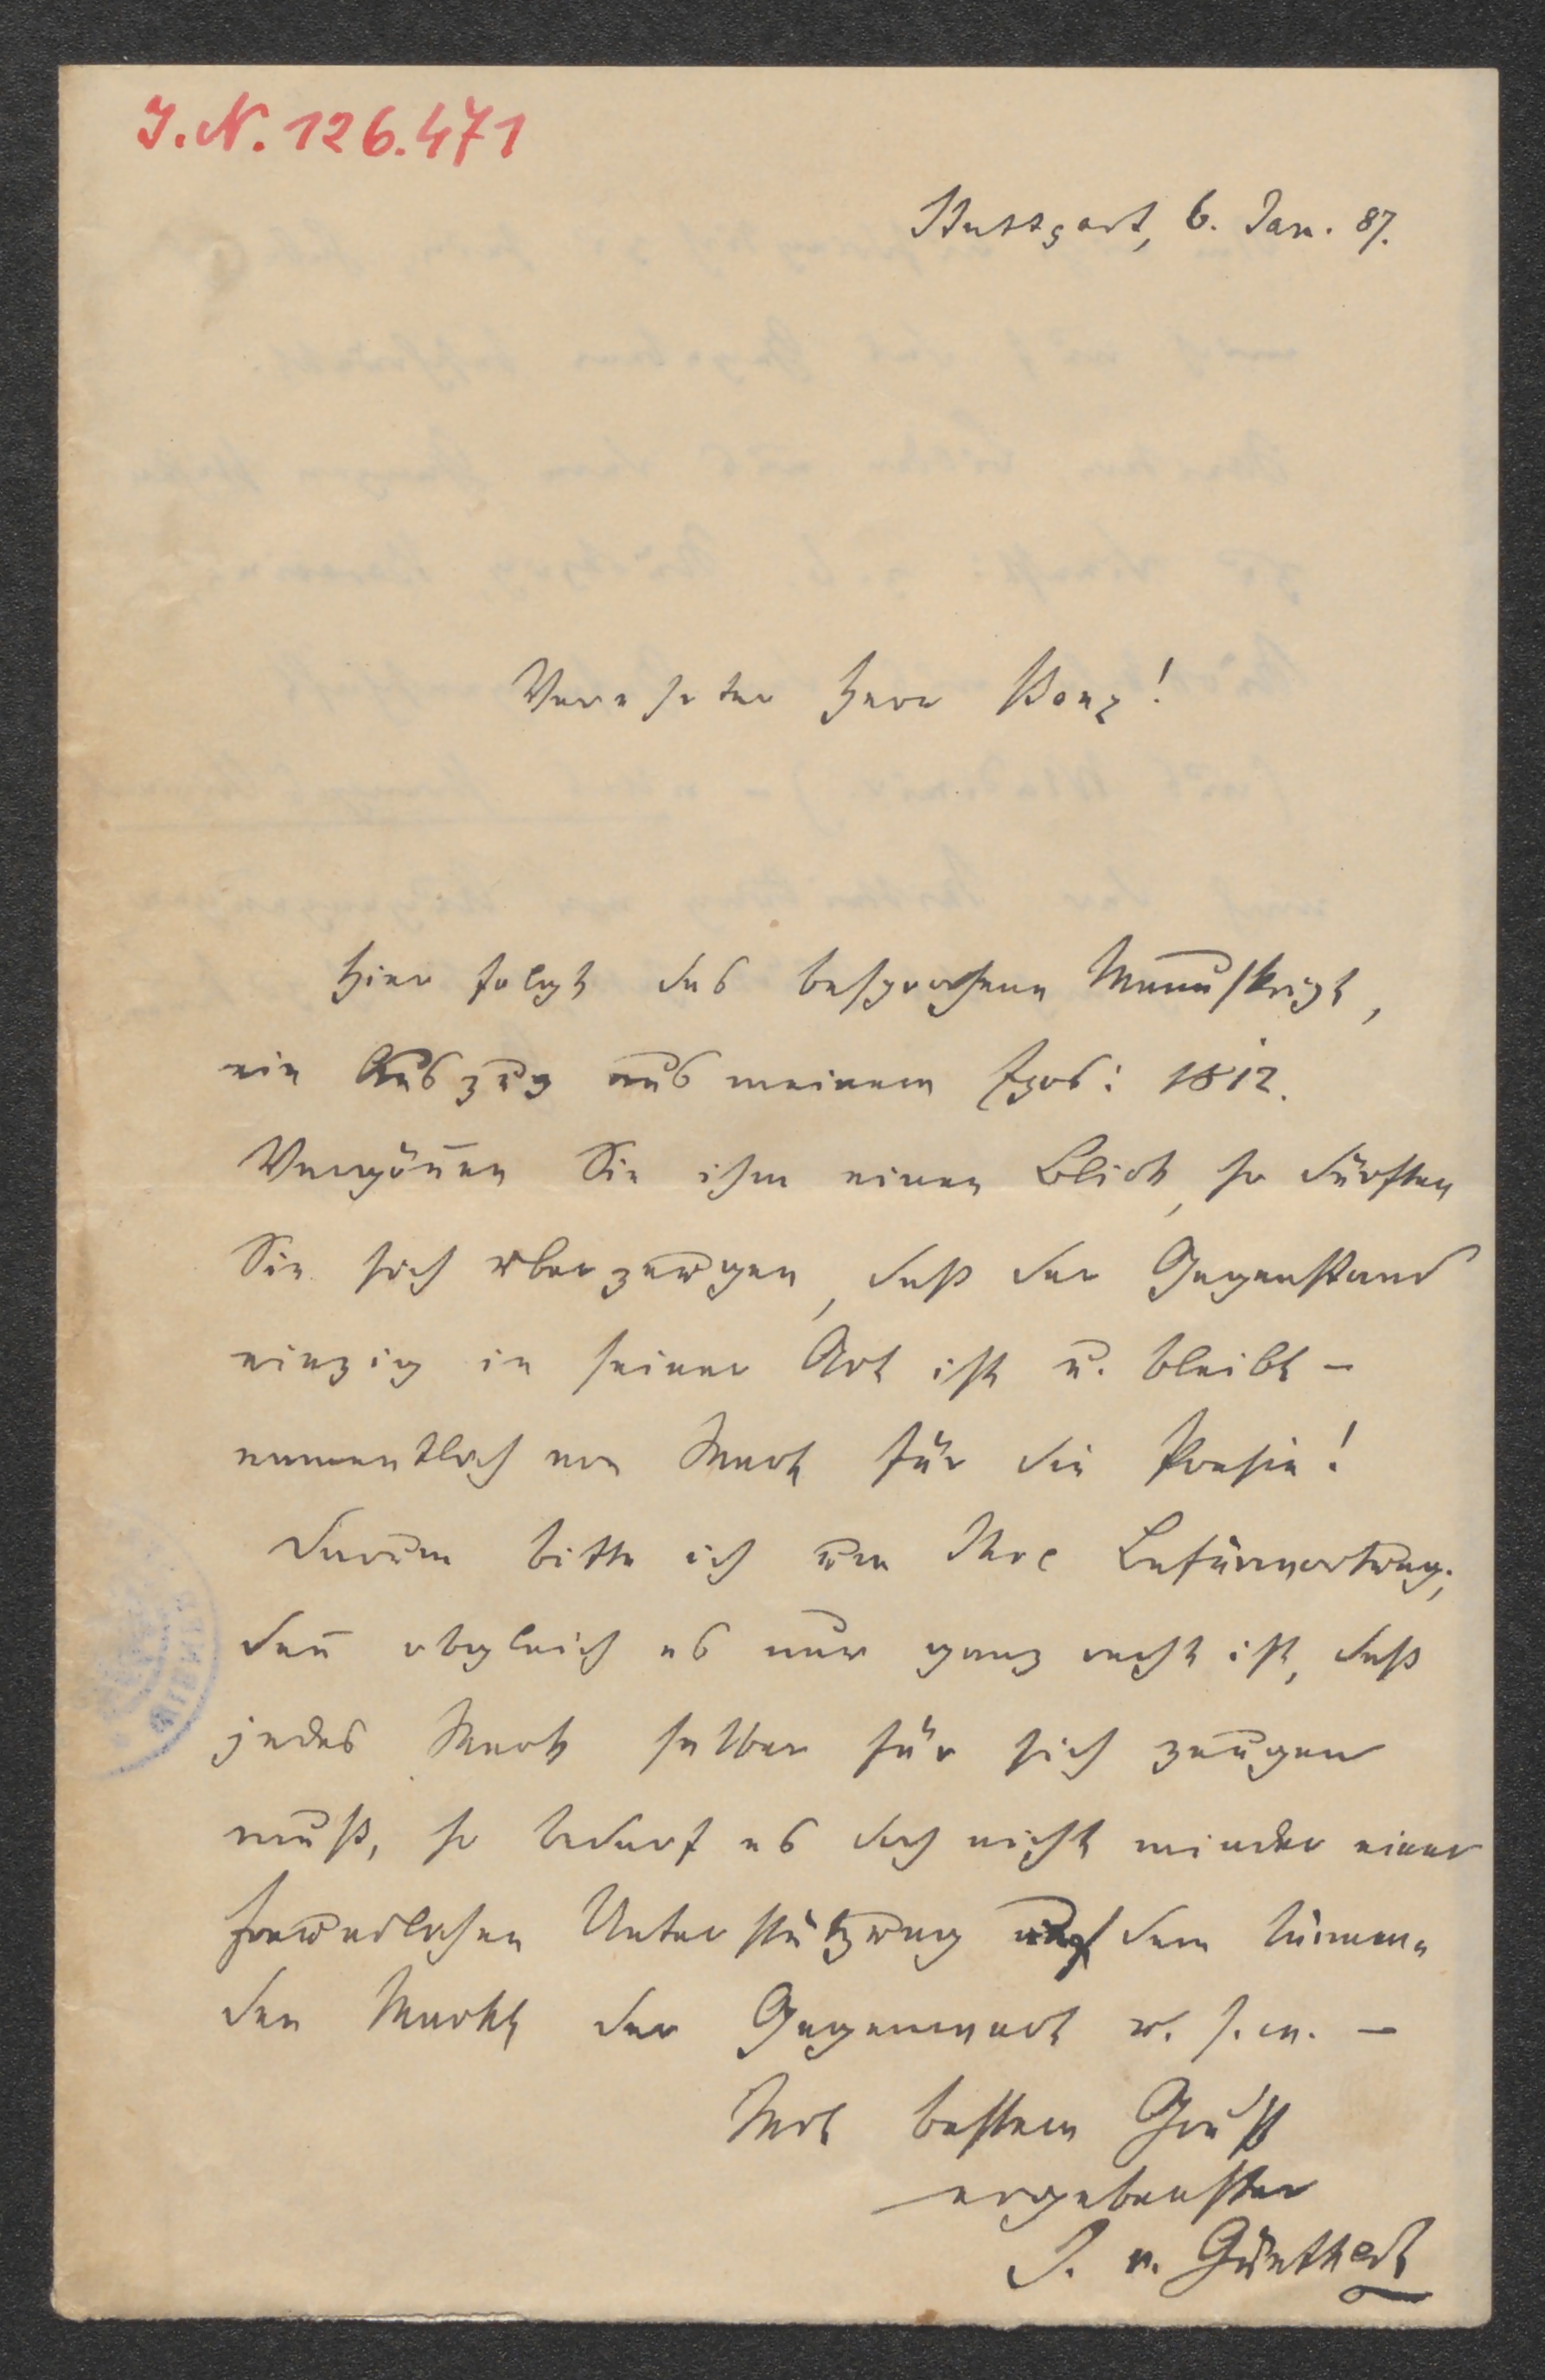 J.N. 126.471
Stuttgart, 6. Jan. 87.
Verehrter Herr Bonz!
Hier folgt das besprochene Manuskript,
ein Auszug aus meinem Epos: 1812.
Vergöñen Sie ihm einen Blick, so dürften
Sie sich überzeugen, daß der Gegenstand
einzig in seiner Art ist u. bleibt –
namentlich an Werth für die Poesie!
Darum bitte ich um Ihre Befürwortung;
deñ obgleich es nur ganz recht ist, daß
jedes Werk selber für sich zeugen
muß, so bedarf es doch nicht minder einer
freundlichen Unterstützung auf dem
den Markt der Gegenwart u. s. w. –
Mit bestem Gruß
ergebenster
J. v. Günthert